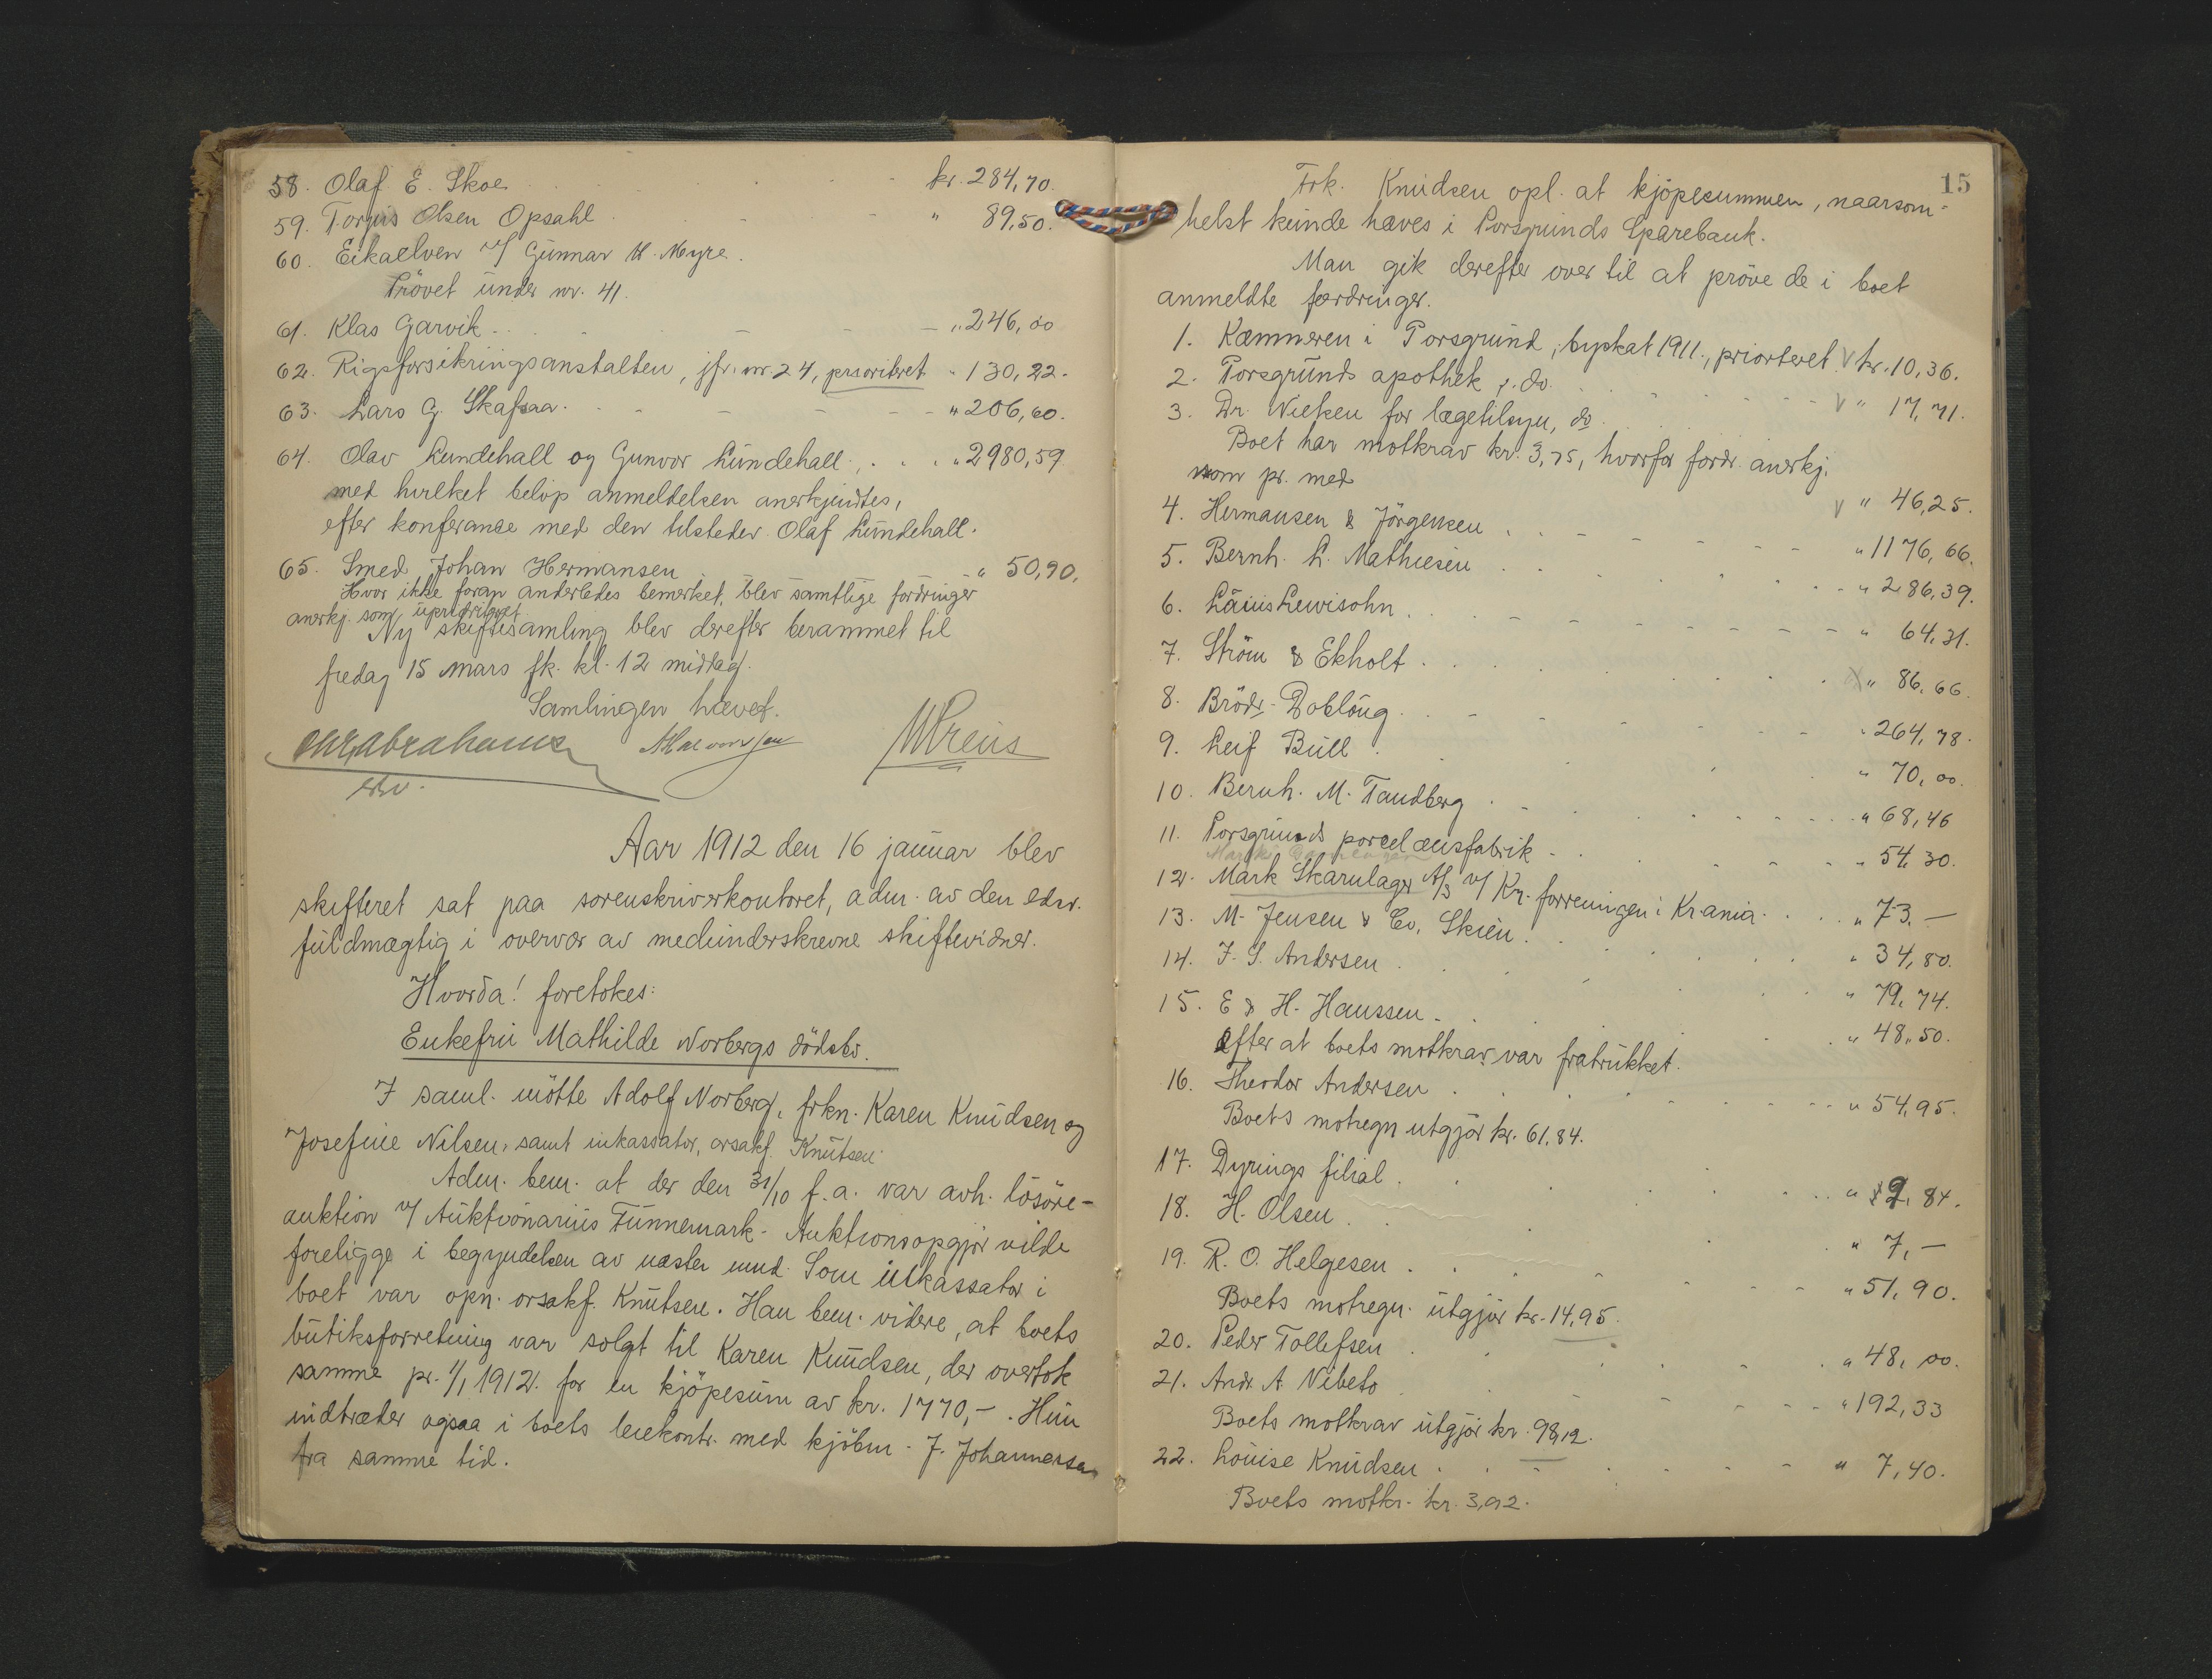 58. Olaf E. Skoe kr. 284,70.
59. Torjus Olsen Opsahl " 89,50.
60. Eikaelven v/ Gunnar H. Myre.
Prövet under nr. 41.
61. Klas Garvik " 246,00
62. Rigsforsikringsanstalten, jfr. nr. 24, prioritert " 130,22.
63. Lars G. Skafsaa " 206,60.
64. Olav Lundehall og Gunvor Lundehall " 2980,59
med hvilket belöp anmeldelsen anerkjendtes,
efter konferanse med den tilstedev. Olaf Lundehall.
65. Smed Johan Hermansen " 50,90.
Hvor ikke foran anderledes bemerket, blev samtlige fordringer
anerkj. som uprioritert.
Ny skiftesamling blev derefter berammet til
fredag 15 mars fk. kl. 12 middag.
Samlingen hævet.
Chr Abrahams
edsv.
Aar 1912 den 16 januar blev
skifteret sat paa sorenskriverkontoret, adm. av den edsv.
fuldmægtig i overvær av medunderskrevne skiftevidner.
Hvorda! foretokes:
Enkefru Mathilde Norbergs dödsbo.
I saml. mötte Adolf Norberg, frkn. Karen Knudsen og
Josefine Nilsen, samt inkassator, orsakf. Knutsen.
Adm. bem. at der den 31/10 f.a. var avh. lösöre-
auktion v/ Auktionarius Tunnemark. Auktionsopgjör vilde
foreligge i begyndelsen av næste mnd. Som inkassator i
boet var opn. orsakf. Knutsen. Han bem. videre, at boets
butiksforretning var solgt til Karen Knudsen, der overtok
samme pr. 1/1 1912. for en kjöpesum av kr. 1770,-. Hun
indtræder ogsaa i boets leiekontr. med kjöbm. J. Johannersen
fra samme tid.
15
Frk. Knudsen opl. at kjöpesummen, naarsom-
helst kunde hæves i Porsgrunds Sparebank.
Man gik derefter over til at pröve de i boet
anmeldte fordringer.
1. Kæmneren i Porsgrund, byskat 1911, prioritert kr. 10,36.
2. Porsgrunds apothek, do. " 17,71.
3. Dr. Nielsen for lægetilsyn, do
Boet har motkrav kr. 3,75, hvorfor fordr. anerkj.
som pr. med " 46,25.
4. Hermansen & Jörgensen " 1176,66.
5. Bernh. L. Mathiesen " 286,39.
6. Laiuis Lewisohn " 64,31.
7. Ström & Ekholt " 86,66.
8. Brödr. Doblöug " 264,78.
9. Leif Bull " 70,00.
10. Bernh. M. Tandberg " 68,46
11. Porsgrunds porcelænsfabrik " 54,30.
12. Mark Skarulager A/S v/ Kr. forreningen i Kr.ania " 73,-
13. M. Jensen & Co, Skien " 34,80.
14. J. S. Andersen " 79,74.
15. E & H. Hanssen " 48,50.
Efter at boets motkrav var fratrukket.
16. Theodor Andersen " 54,95.
Boets motregn utgjör kr. 61,84.
17. Dyrings filial " 9,84.
18. H. Olsen " 7,-
19. R. O. Helgesen " 51,90.
Boets motregn. utgjör kr. 14,95.
20. Peder Tollefsen " 48,00.
21. Andr. A. Nibeto " 192,33
Boets motkrav utgjör kr. 98,12.
22. Louise Knudsen " 7,40.
Boets motkr. kr. 3,92.